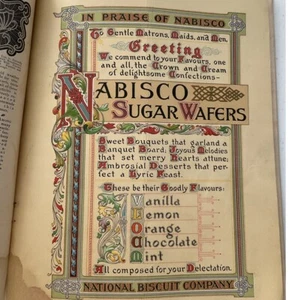 IN PRAISE OF NABISCO
To Gentle Matrons, Maids, and Men,
Greeting
We commend to your Favours, one
and all, the Crown and Cream
of delightsome Confections—
NABISCO
SUGAR WAFERS
Sweet Bouquets that garland a
Banquet Board; Joyous Melodies
that set merry Hearts attune;
Ambrosial Desserts that per-
fect a Lyric Feast.
These be their Goodly Flavours:
Vanilla
Lemon
Orange
Chocolate
Mint
All composed for your Delectation.
NATIONAL BISCUIT COMPANY